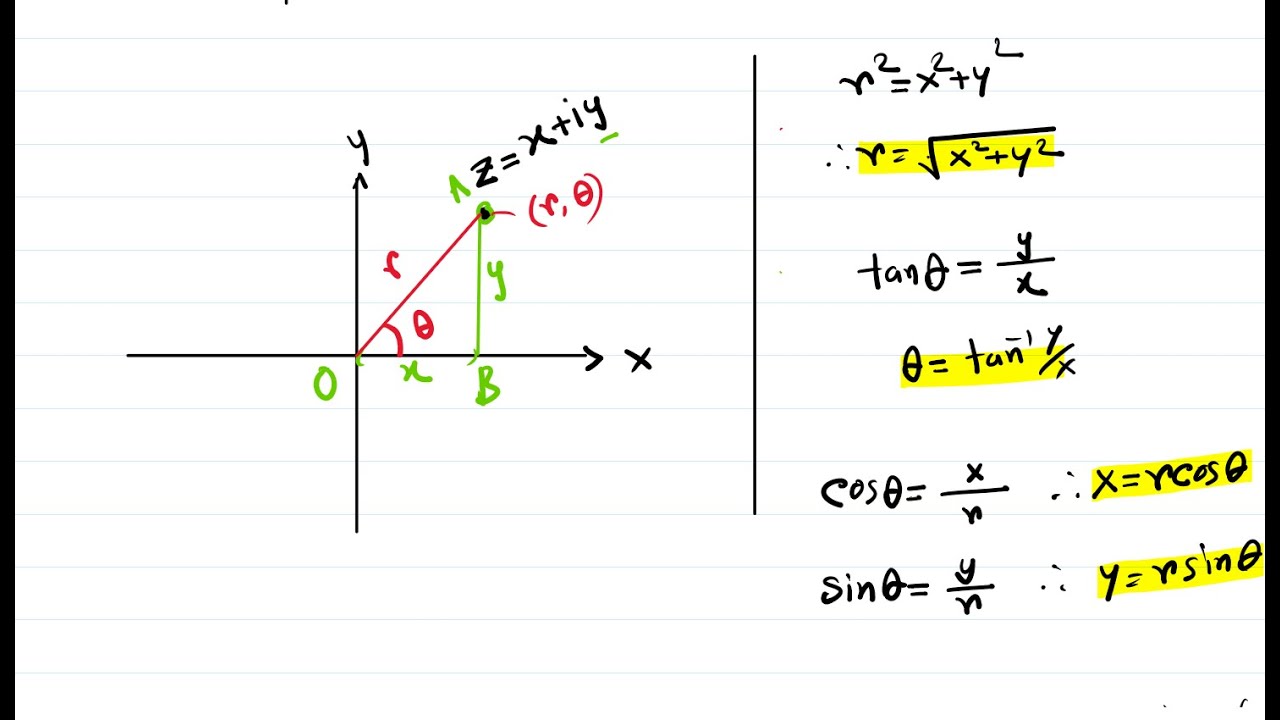 y
z = x+iy
A
(r, θ)
r
y
θ
O
x
B
X
r² = x² + y²
∴ r = √x²+y²
tanθ = y/x
θ = tan⁻¹ y/x
cosθ = x/r ∴ x = rcosθ
sinθ = y/r ∴ y = rsinθ